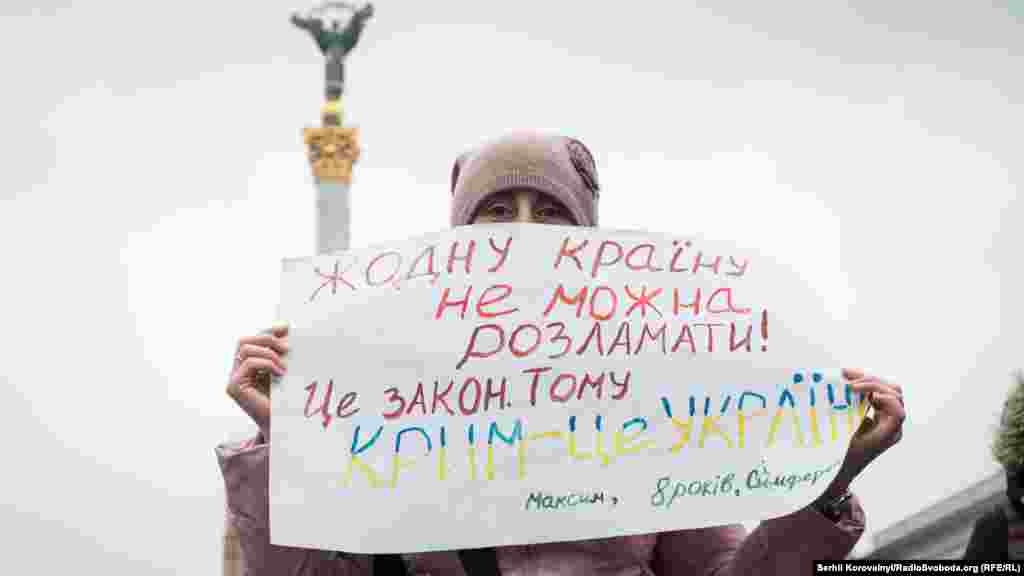 ЖОДНУ КРАЇНУ
НЕ МОЖНА
РОЗЛАМАТИ!
ЦЕ ЗАКОН. ТОМУ
КРИМ-ЦЕ УКРАЇН
Максим, 8 років, Сімфер
Serhii Korovalnyi/RadioSvoboda.org (RFE/RL)